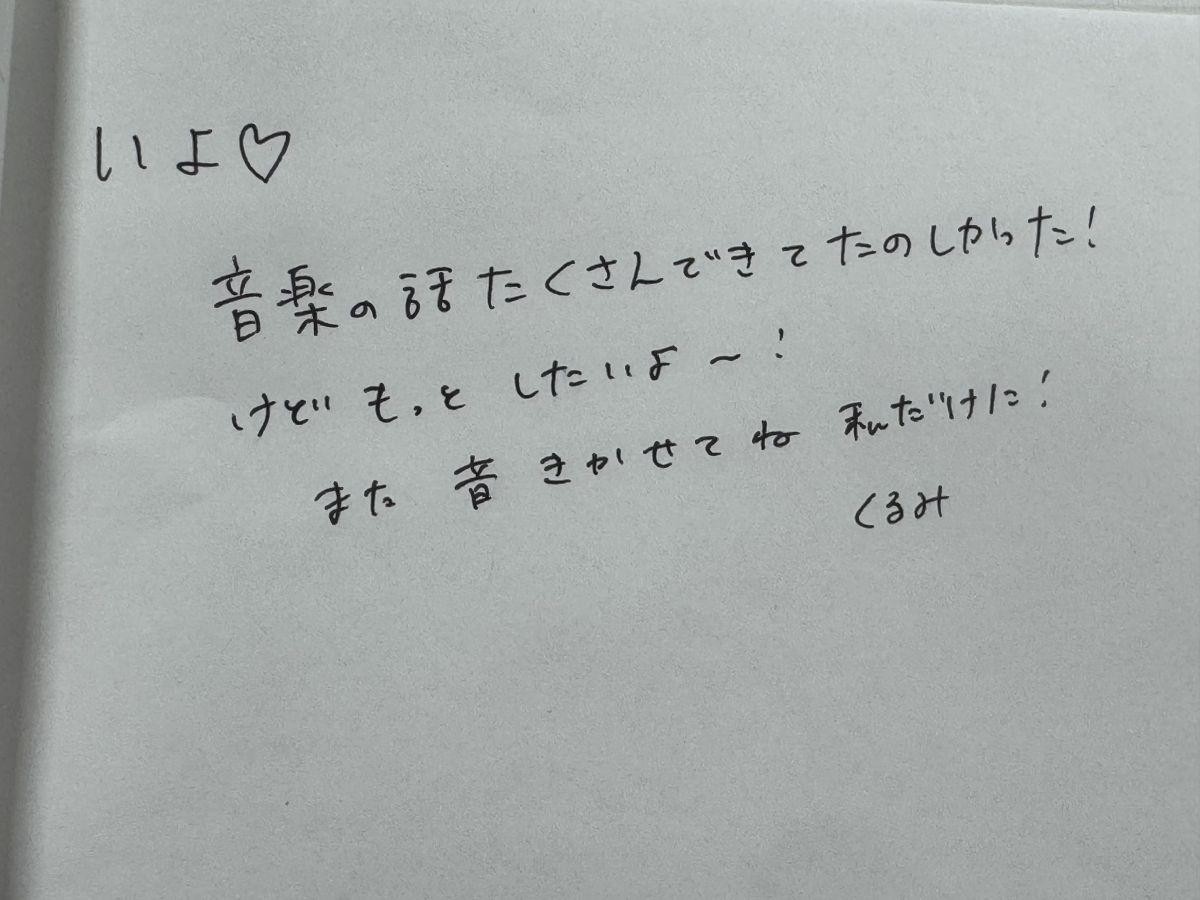 いよ♡
音楽の話たくさんできてたのしかった!
けどもっとしたいよ〜!
また音きかせてね 私だけに!
くるみ